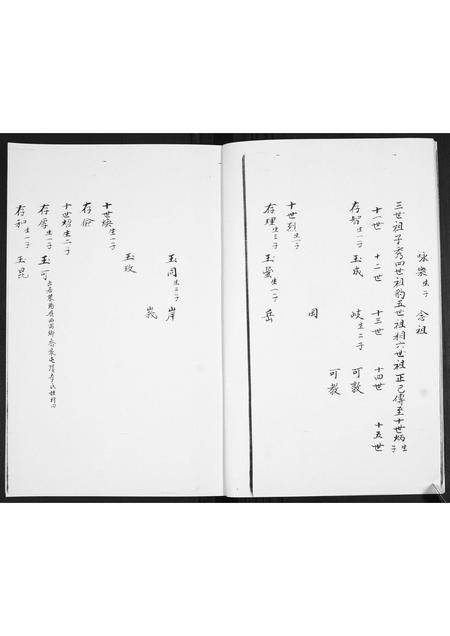 咏樂生子 念祖
三世祖子秀四世祖豹五世祖相六世祖正己傳至十世炳生子
十一世 十二世 十三世 十四世 十五世
存智生一子 玉成 岐生二子 可敦
可教
岡
十世烈生一子
存理生三子 玉瑩生一子 岳
玉岡生二子 岸
峩
玉玫
十世焕生一子
存儉
十世熖生二子
存厚生一子 玉可
存和生一子 玉昆